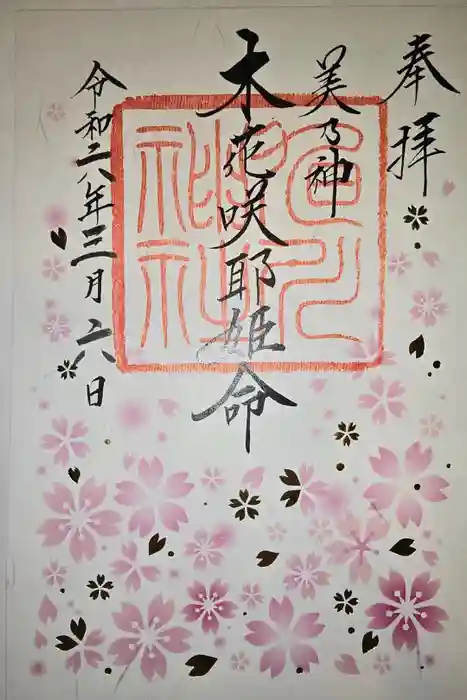 奉拝
美乃神
木花咲耶姫命
令和六年三月六日